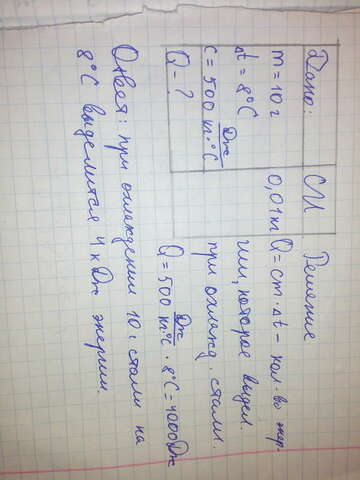 Дано:
m = 10 г
Δt = 8°C
c = 500 Дж/кг·°C
Q - ?
СИ
0,01 кг
Решение
Q = cm·Δt - кол-во энер-
гии, которое выдел.
при охлажд. стали.
Q = 500 Дж/кг·°C · 8°C = 4000 Дж
Ответ: при охлаждении 10 г стали на
8°C выделится 4 кДж энергии.